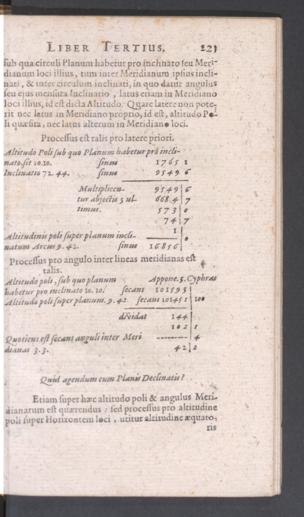 LIBER TERTIUS. 223
sub qua circuli Planum habetur pro inclinato seu Meri-
dianum loci illius, tum inter Meridianum ipsius incli-
nati, & inter circulum inclinati, in quo datur angulus
seu ejus mensura Inclinatio, latus etiam in Meridiano
loci illius, id est dicta Altitudo. Quare latere non pote-
rit nec latus in Meridiano proprio, id est, altitudo Po-
li quæsita, nec latus alterum in Meridiano loci.
Processus est talis pro latere priori.
Altitudo Poli sub quo Planum habetur pro incli-
nato. sit 10. 10. sinus 1765 1
Inclinatio 72. 44. sinus 9549 6
Multiplicen- 9549 6
tur abjectis 5 ul- 6684 7
timis. 573 0
74 7
1
Altitudinis poli super planum incli-
natum Arcus 9. 42. sinus 16856
Processus pro angulo inter lineas meridianas est
talis.
Altitudo poli, sub quo planum Appone. 5. Cyphras
habetur pro inclinato 10. 10. secans 101595
Altitudo poli super planum. 9. 42 secans 101451 | 100
differentia 144
102 1
Quotiens est secans anguli inter Meri 4
dianas 3. 3. 42 0
Quid agendum cum Planis Declinatis?
Etiam super hæc altitudo poli & angulus Meri-
dianarum est quærendus: sed processus pro altitudine
poli super Horizontem loci, utitur altitudine æquato-
ris